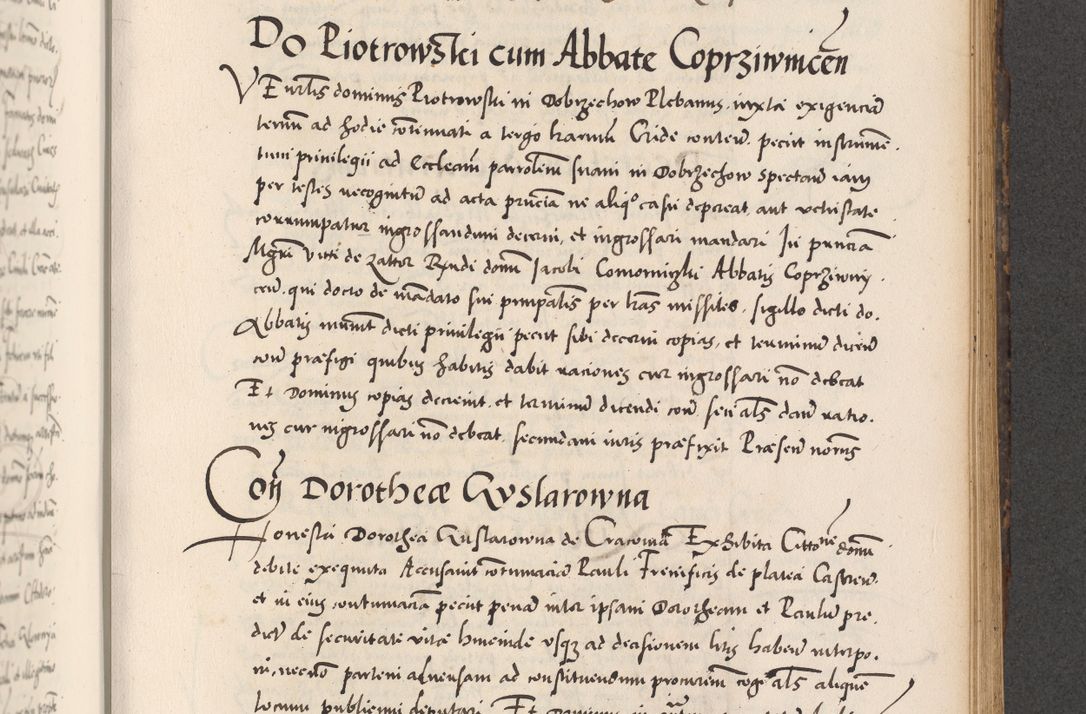 Do Piotrowski cum Abbate Coprziwnicen
VEnrlis dominus Piotrowski in Dobrzechow Plebanus, iuxta exigenciam
termini ad hodie continuati a tergo litterarum Cride conten. peciit instrumen.
tum privilegii ad Eccleam parrolem suam in Dobrzechow spectan iam
per testes recognitum ad acta pnciam ne aliquo casu depereat aut vetustate
corrumpatur ingrossandum decerni, et ingrossari mandari In pnciam
Mgri Viti de Zattor Rndi domini Jacobi Abbatis Coprziwny.
cen. qui docto de mandato sui principalis per lras missiles, sigillo dicti do.
Abbatis munit dicti privilegii peciit sibi decerni copias, et terminum dicen
con praefigi quibus habitis dabit raciones cur ingrossari non debeat
Et Dominus copias decrevit, et terminum dicendi con, seu als dan ratio.
nes cur ingrossari non debeat, secundam iuris praefixit Praesen
Con Dorotheae Guslarowna
Honesta Dorothea Guslarowna de Cracovia Exhibita Cittone domini
debite exequuta Accusavit contumaciam Pauli Frenificis de platea Castren.
et in eius contumaciam peciit penam inter ipsam Dorotheam et Paulum pre.
dictum de securitate vitae hincinde usque ad decisionem litis haben interpo.
ni, necnon partem adversam ad constituendum procuratorem cogi als aliquem
locum publicum deputari Et Dominus in